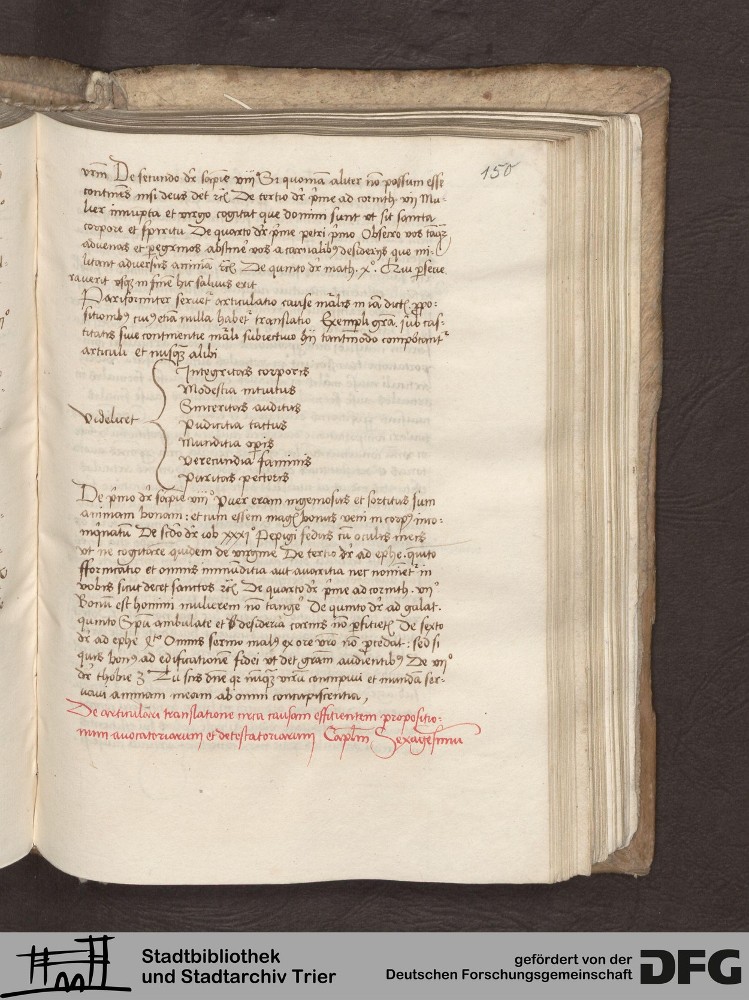 150
vrm̄ De secundo dr̄ sapīe viij° Si quoniam aliter nō possum esse
continens nisi deus det rc̄ De tertio dr̄ pīme ad corinth. vij Mu-
lier innupta et virgo cogitat que domini sunt vt sit sancta
corpore et spiritu De quarto dr̄ pīme petri pīmo Obsecro vos tāqꝫ
aduenas et peregrinos abstinē vos a carnalibꝰ desiderijs que mi-
litant aduersus animā rc̄ De quinto dr̄ math. x°. Qui perseue
rauerit vsqꝫ in finē hic saluus erit
Pariformiter seruet̄ articulatio cause mālis in iā dict̄ ꝓpo-
sitionibꝰ cuiꝰ etiam nulla habet̄ translatio Exempli grā. sub cas-
titatis siue continentie māli subiectiuo hij tantmodo compotant̄
articuli et nusqꝫ alibi
Integritas corporis
Modestia intuitus
Sinceritas auditus
Videlicet Pudicitia tactus
Munditia oꝑis
Verecundia faminis
Puritas pectoris
De pīmo dr̄ sapīe viij° Puer eram ingeniosus et sortitus sum
animam bonam: et cum essem magꝭ bonus veni in corpꝰ inco-
inquinatū De scd̄o dr̄ iob xxxi° Pepigi fedus cū oculis meis
vt ne cogitarē quidem de virgine De tertio dr̄ ad ephe. quito
fformicatio et omnis immūditia aut auaritia nec nominet̄ in
vobis sicut decet sanctos rc̄ De quarto dr̄ pīme ad corinth. vij°
Bonū est homini mulierem nō tangeꝰ De quinto dr̄ ad galat.
quinto Spū ambulate et desideria carnis nō ꝑficietꝭ De sexto
dr̄ ad ephe Omnis sermo malꝰ ex ore vr̄o nō ꝓcedat: sed si
quis bonꝰ ad edificationē fidei vt det grām audientibꝰ De vij°
dr̄ thobie 3 Tu scis dn̄e qꝛ nūqꝫ virū concupiui et mundā ser-
uaui animam meam ab omni concupiscentia,
De articulari translatione circa causam efficientem propositio-
num auocatoriarum et detestatoriarum Capl̄m Sexagesimū
Stadtbibliothek
und Stadtarchiv Trier
gefördert von der
Deutschen Forschungsgemeinschaft
DFG